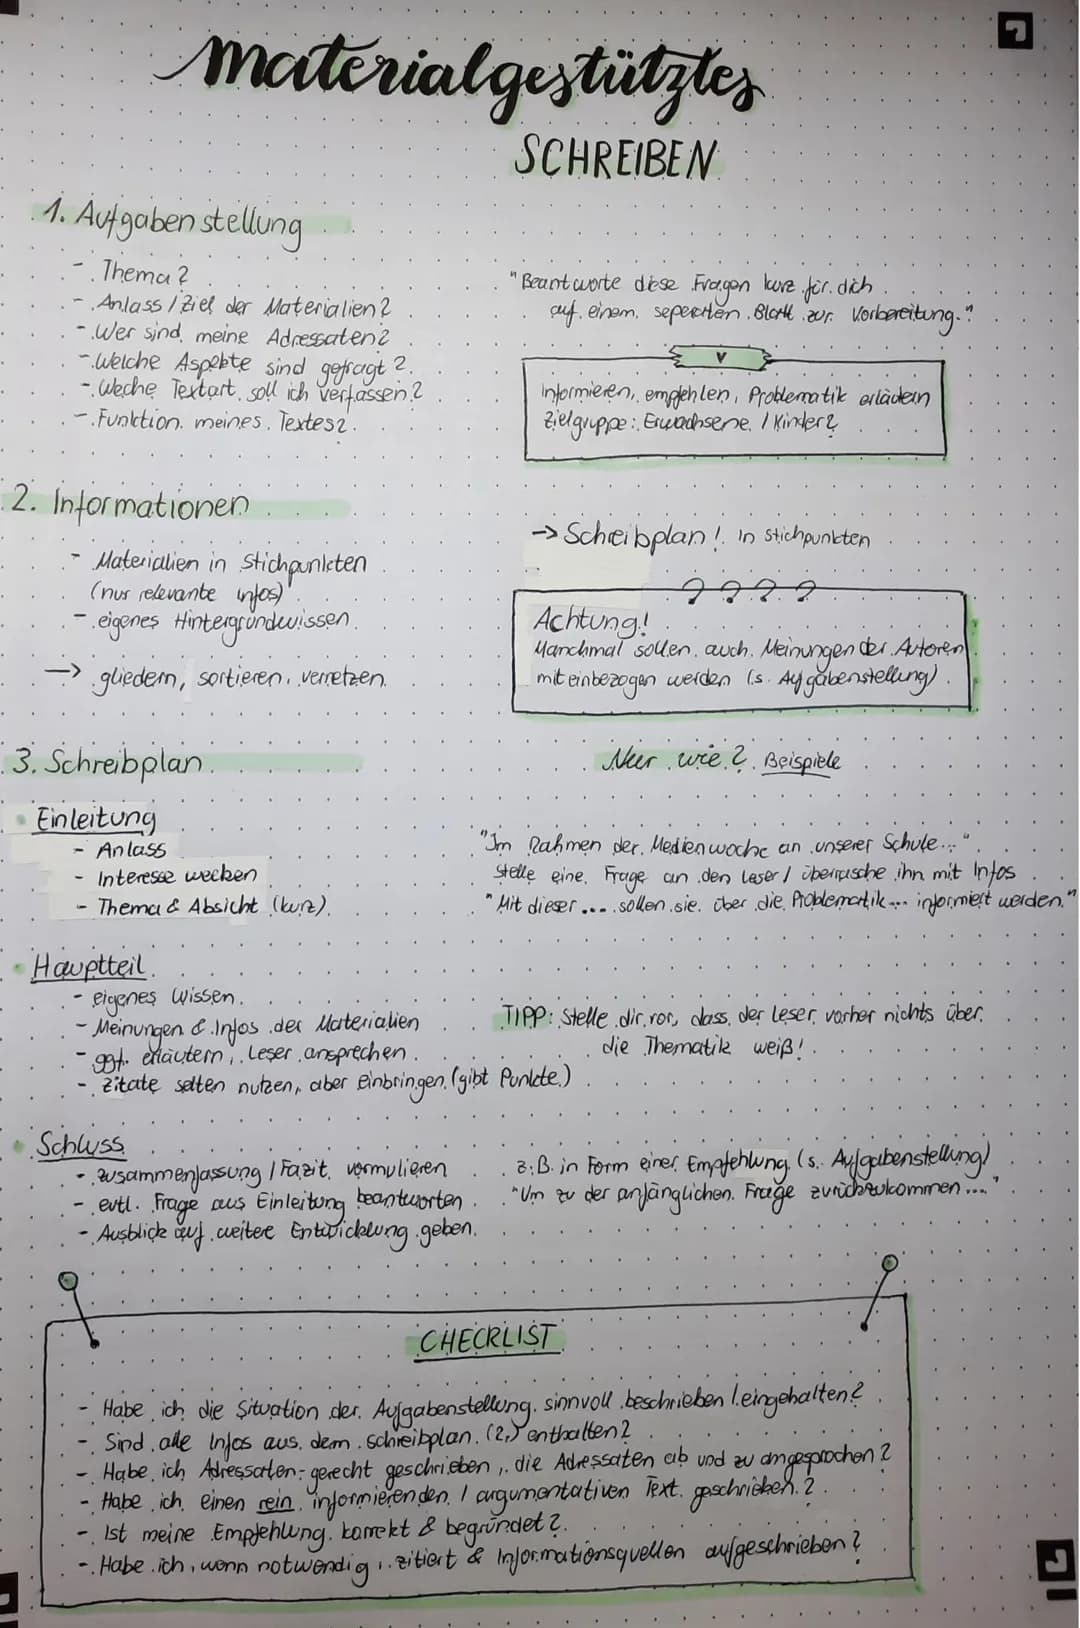 Materialgestütztes
SCHREIBEN
1. Aufgabenstellung
- Thema?
- Anlass / Ziel der Materialien?
- Wer sind meine Adressaten?
- Welche Aspekte sind gefragt?
- Weche Textart soll ich verfassen?
- Funktion meines Textes?
"Beantworte diese Fragen kurz für dich
auf einem seperaten Blatt zur Vorbereitung."
Informieren, empfehlen, Problematik erläutern
Zielgruppe: Erwachsene / Kinder?
2. Informationen
- Materialien in Stichpunkten
(nur relevante Infos)
- eigenes Hintergrundwissen
→ gliedern, sortieren, vernetzen
→ Schreibplan! in Stichpunkten
? ? ? ?
Achtung!
Manchmal sollen auch Meinungen der Autoren
miteinbezogen werden (s. Aufgabenstellung)
3. Schreibplan
Nur wie? Beispiele
• Einleitung
- Anlass
- Interesse wecken
- Thema & Absicht (kurz)
"Im Rahmen der Medienwoche an unserer Schule..."
Stelle eine Frage an den Leser / überrasche ihn mit Infos
"Mit dieser .... sollen sie über die Problematik... informiert werden."
• Hauptteil
- eigenes Wissen
- Meinungen & Infos der Materialien
- ggf. erläutern, Leser ansprechen
- Zitate selten nutzen, aber einbringen (gibt Punkte)
TIPP: Stelle dir vor, dass der Leser vorher nichts über
die Thematik weiß!
• Schluss
- Zusammenfassung / Fazit vormulieren
- evtl. Frage aus Einleitung beantworten
- Ausblick auf weitere Entwicklung geben
z.B. in Form einer Empfehlung (s. Aufgabenstellung)
"Um zu der anfänglichen Frage zurückzukommen ...."
CHECKLIST
- Habe ich die Situation der Aufgabenstellung sinnvoll beschrieben / eingehalten?
- Sind alle Infos aus dem Schreibplan (2.) enthalten?
- Habe ich Adressaten-gerecht geschrieben, die Adressaten ab und zu angesprochen?
- Habe ich einen rein informierenden / argumentativen Text geschrieben?
- Ist meine Empfehlung korrekt & begründet?
- Habe ich, wenn notwendig, zitiert & Informationsquellen aufgeschrieben?